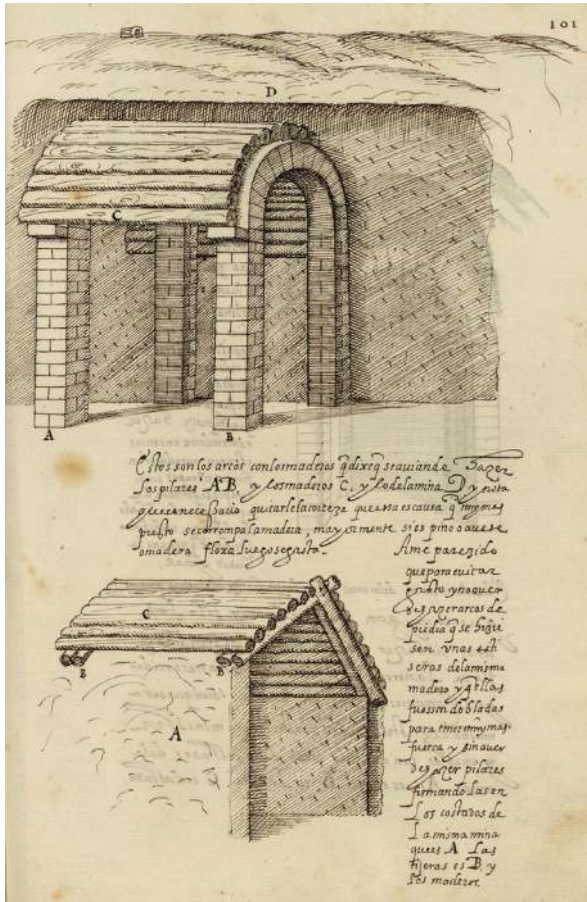 101
D
C
A
B
Estos son los arcos con los maderos q̃ dixe q̃ se auian de Hazer
los pilares A B, y los maderos C, y lo de la mina D y nota
que es necessario quitarle la corteza que essa es causa q̃ muy mas
presto se corrompa la madera, mayormente si es pino o aue es
o madera floxa luego se gasta.
A me parezido
que para euitar
gasto y no auer
de hazer arcos de
piedra q̃ se hiçie
sen vnas teh
seras de la misma
madera y q̃ ellas
fuessen dobladas
para tener muy mas
fuerça y sin auer
de hazer pilares
firmando las en
los costados de
la misma mina
que es A las
tijeras es B y
los maderos.
C
B
B
A